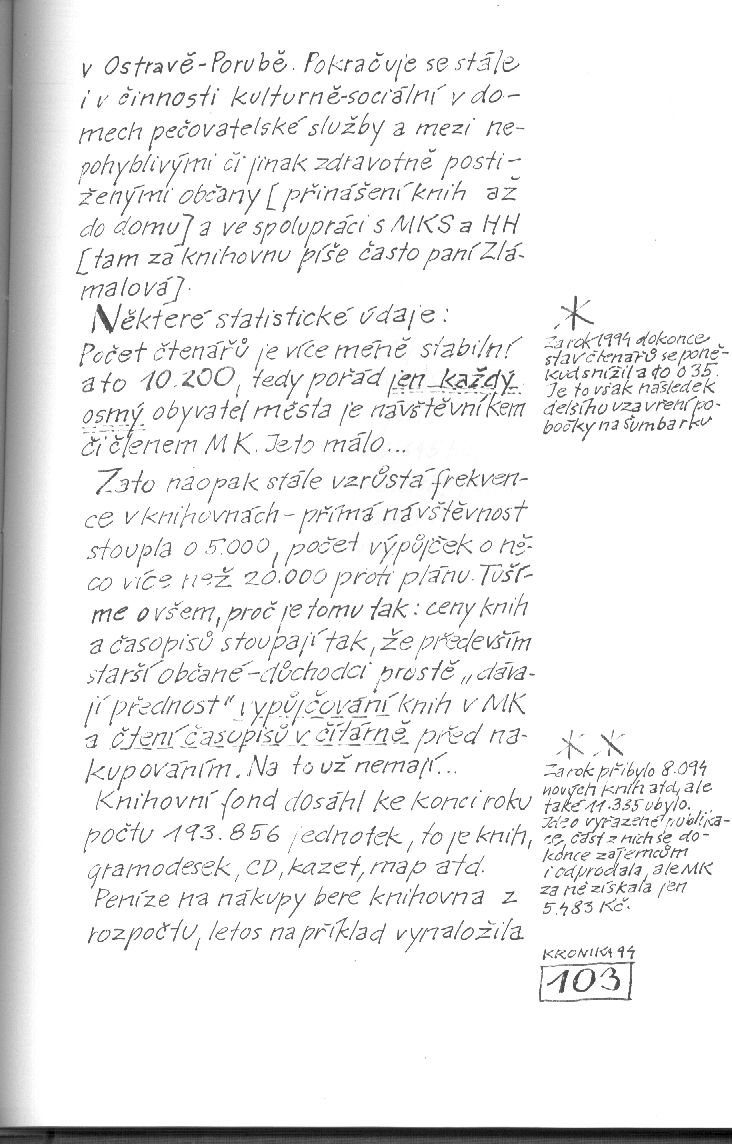 v Ostravě-Porubě. Pokračuje se stále
i v činnosti kulturně-sociální v do-
mech pečovatelské služby a mezi ne-
pohyblivými či jinak zdravotně posti-
ženými občany [přinášení knih až
do domu] a ve spolupráci s MKS a HH
[tam za knihovnu píše často paní Zlá-
malová].
Některé statistické údaje:
Počet čtenářů je více méně stabilní
a to 10.200, tedy pořád jen každý
osmý obyvatel města je návštěvníkem
či členem MK. Je to málo...
Zato naopak stále vzrůstá frekven-
ce v knihovnách - přímá návštěvnost
stoupla o 5.000, počet výpůjček o ně-
co více než 20.000 proti plánu. Tuší-
me ovšem, proč je tomu tak: ceny knih
a časopisů stoupají tak, že především
starší občané - důchodci prostě „dáva-
jí přednost" vypůjčování knih v MK
a čtení časopisů v čítárně před na-
kupováním. Na to už nemají...
Knihovní fond dosáhl ke konci roku
počtu 193.856 jednotek, to je knih,
gramodesek, CD, kazet, map atd.
Peníze na nákupy bere knihovna z
rozpočtu, letos například vynaložila
*
Za rok 1994 dokonce
stav čtenářů se poně-
kud snížil a to o 35.
Je to však následek
delšího uzavření po-
bočky na Šumbarku
* *
Za rok přibylo 8.094
nových knih atd, ale
také 11.335 ubylo.
Jde o vyřazené publika-
ce, část z nich se do-
konce zájemcům
i odprodala, ale MK
za ně získala jen
5.483 Kč.
KRONIKA 94
103